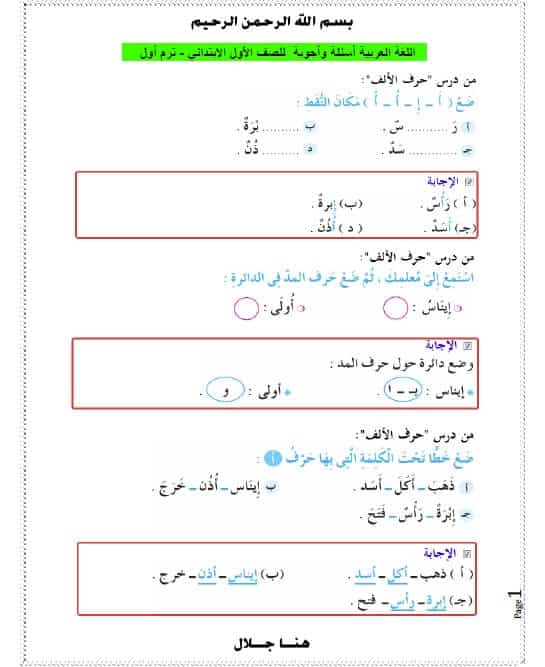 بسم الله الرحمن الرحيم
اللغة العربية أسئلة وأجوبة للصف الأول الابتدائي - ترم أول
من درس "حرف الألف":
ضَعْ ( أَ – إِ – أُ – أْ ) مَكَانَ النُّقَطِ :
أ رَ .......... سٌ . ب .......... بْرَةٌ .
جـ ............ سَدٌ . د .......... ذُنٌ .
الإجابة
( أ ) رَأْسٌ . (ب) إبرةٌ .
(جـ) أَسَدٌ . ( د ) أُذُنٌ .
من درس "حرف الألف":
اسْتَمِعْ إِلَى مُعلمِكَ ، ثُمَّ ضَعْ حَرفَ المدِّ فِى الدائرةِ :
إِينَاسُ : أُولَى :
الإجابة
وضع دائرة حول حرف المد :
* إيناس : يـ – ا . * أولى : و .
من درس "حرف الألف":
ضَعْ خَطًّا تَحْتَ الْكَلِمَةِ الَّتِى بِهَا حَرْفُ أ :
أ ذَهَبَ – أَكَلَ – أَسَد . ب إِينَاس – أُذُن – خَرَجَ .
جـ إِبْرَةٌ – رَأْسٌ – فَتَحَ .
الإجابة
( أ ) ذهب – أكل – أسد . (ب) إيناس – أذن – خرج .
(جـ) إبرة – رأس – فتح .
هنا جلال
Page 1